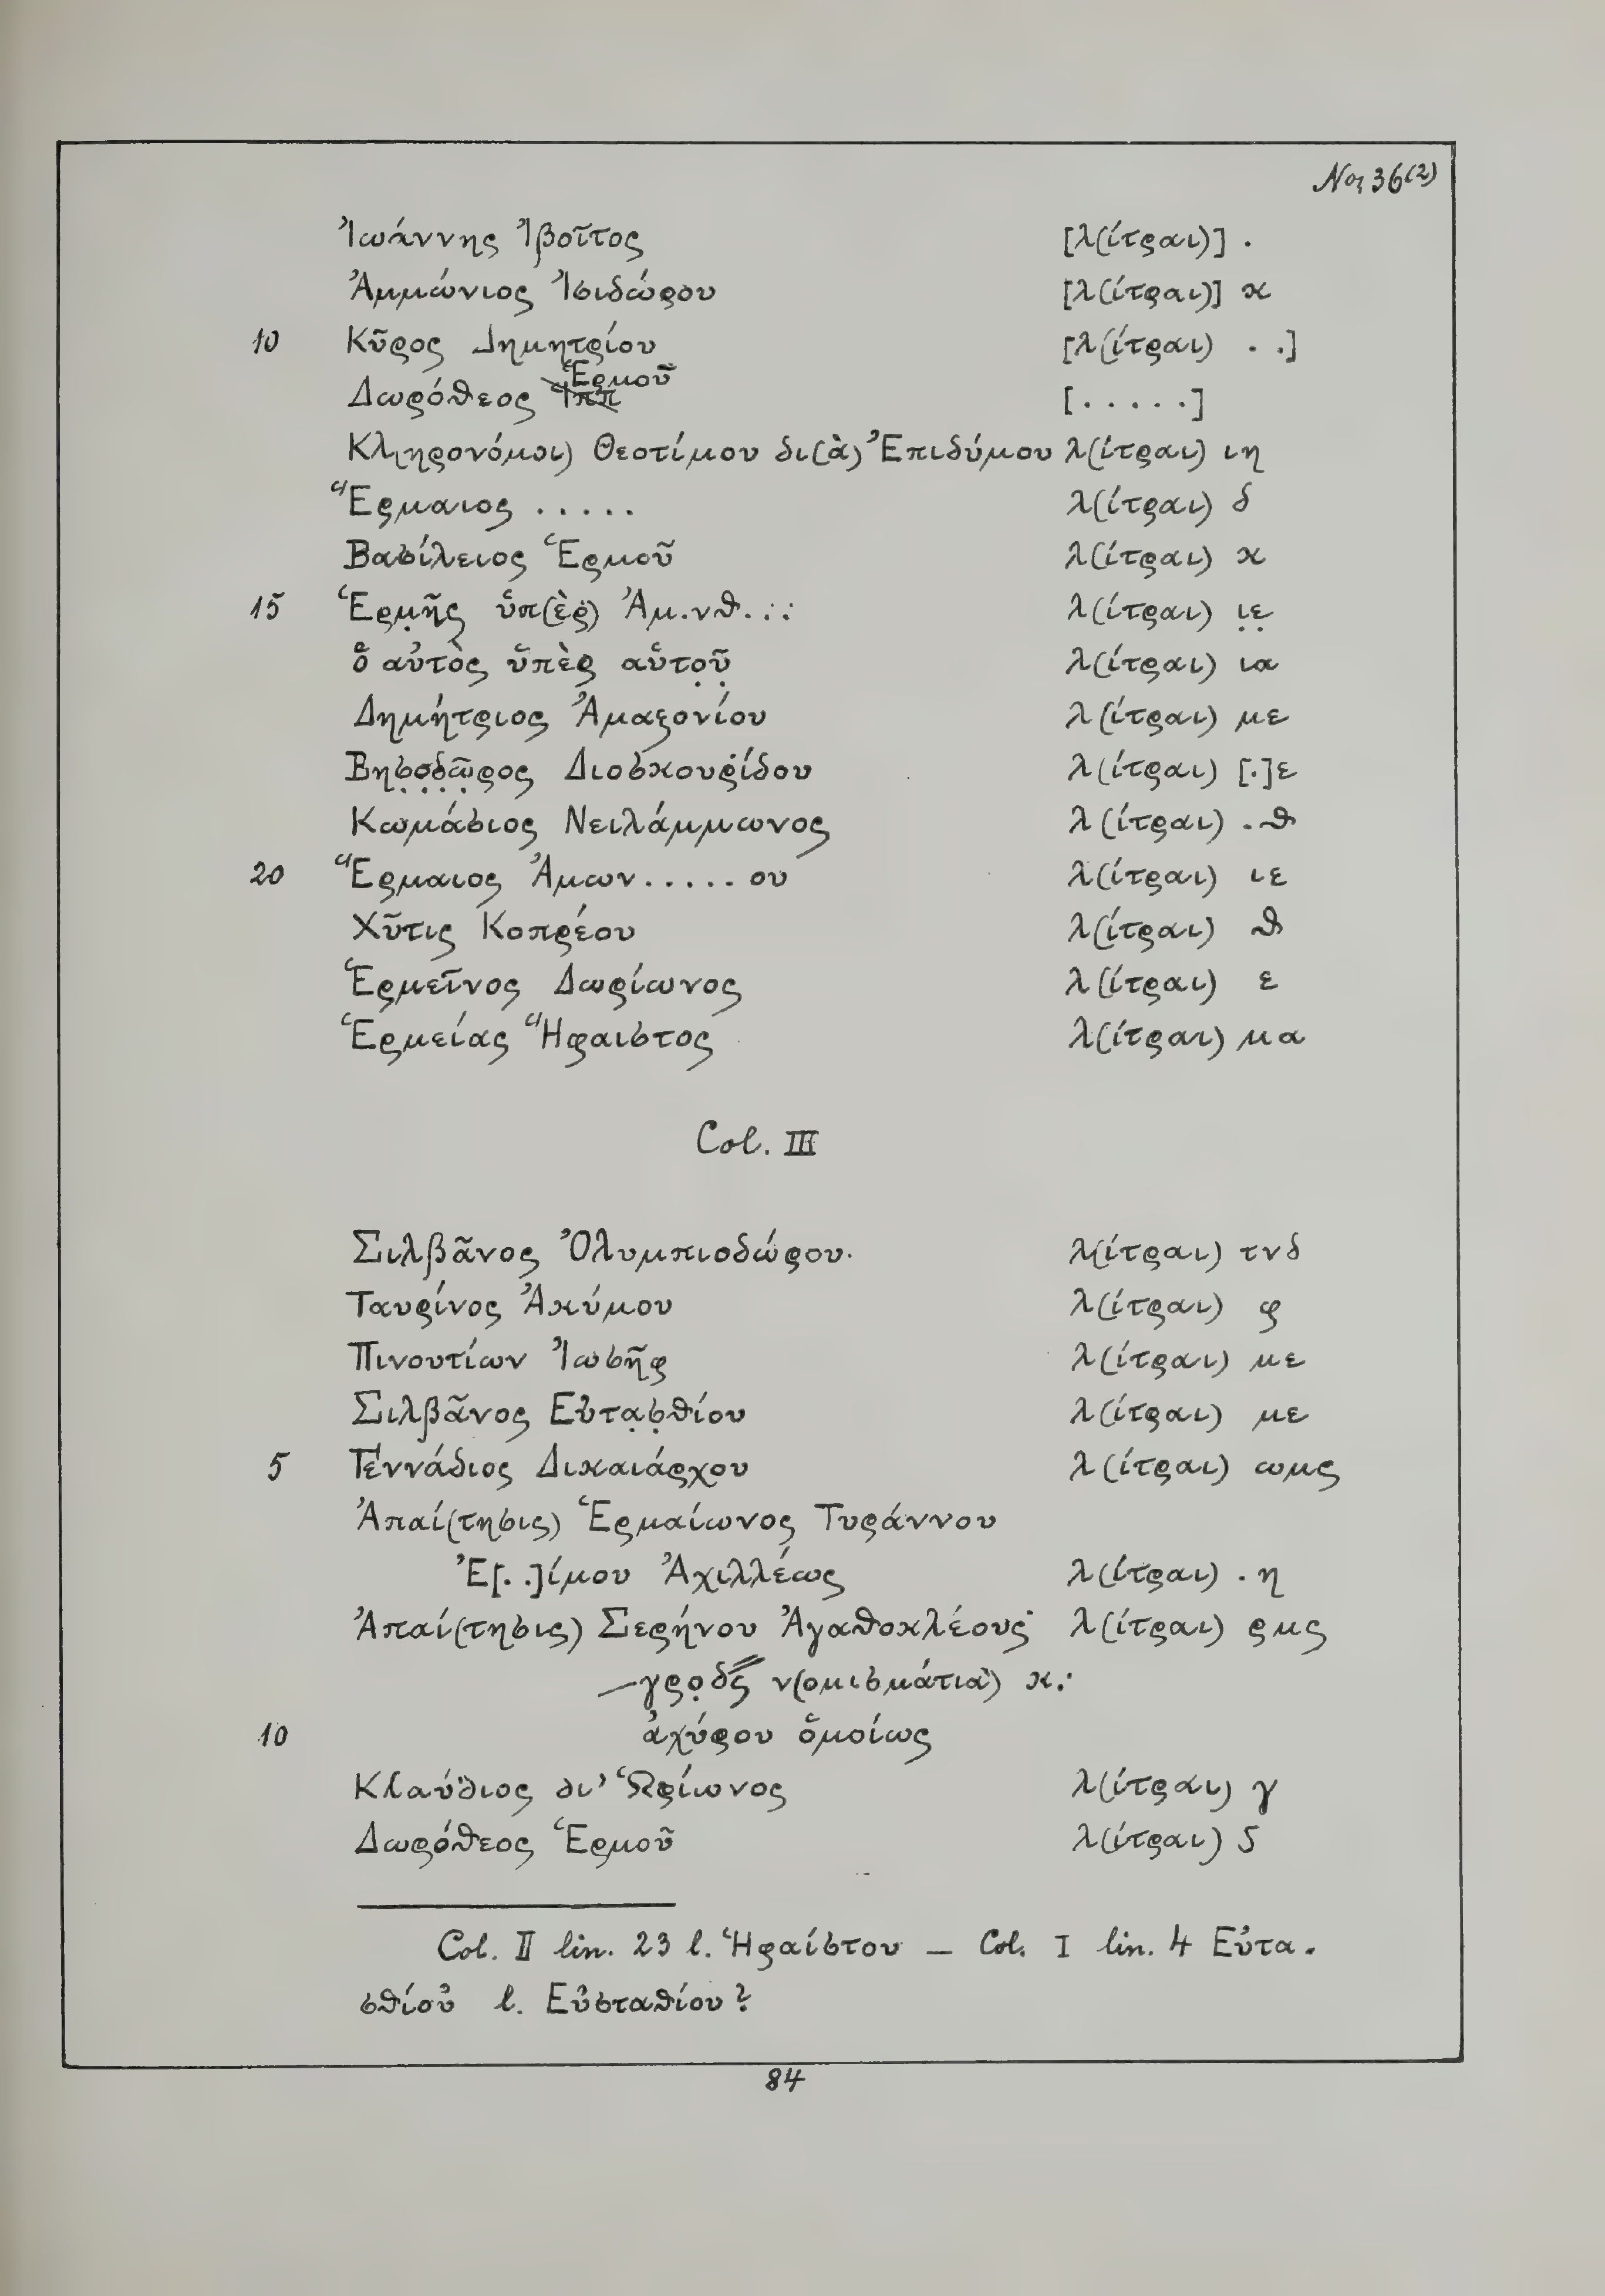 No, 36(2)
Ἰωάννης Ἰβοῖτος [λ(ίτραι)] .
Ἀμμώνιος Ἰσιδώρου [λ(ίτραι)] κ
10 Κῦρος Δημητρίου [λ(ίτραι) . .]
Ἑρμοῦ
Δωρόθεος Ἱππ [. . . . .]
Κλ(ηρονόμοι) Θεοτίμου δι(ὰ) Ἐπιδύμου λ(ίτραι) ιη
Ἕρμαιος . . . . . λ(ίτραι) δ
Βασίλειος Ἑρμοῦ λ(ίτραι) κ
15 Ἑρμ̣ῆς ὑπ(ὲρ) Ἀμ.νθ. . . λ(ίτραι) ι̣ε̣
ὁ αὐτὸς ὑπὲρ αὑτο̣ῦ̣ λ(ίτραι) ια
Δημήτριος Ἀμαζονίου λ(ίτραι) με
Βησ̣ο̣δ̣ῶ̣ρος Διοσκουρίδου λ(ίτραι) [.]ε
Κωμάσιος Νειλάμμωνος λ(ίτραι) .θ
20 Ἕρμαιος Ἀμων. . . . . ου λ(ίτραι) ιε
Χῦτις Κοπρέου λ(ίτραι) θ
Ἑρμεῖνος Δωρίωνος λ(ίτραι) ε
Ἑρμείας Ἥφαιστος λ(ίτραι) μα
Col. III
Σιλβᾶνος Ὀλυμπιοδώρου λ(ίτραι) τνδ
Ταυρίνος Ἀκύμου λ(ίτραι) φ
Πινουτίων Ἰωσῆφ λ(ίτραι) με
Σιλβᾶνος Εὐτα̣σ̣θίου λ(ίτραι) με
5 Γεννάδιος Δικαιάρχου λ(ίτραι) ωμς
Ἀπαί(τησις) Ἑρμαίωνος Τυράννου
Ἐ[. .]ίμου Ἀχιλλέως λ(ίτραι) . η
Ἀπαί(τησις) Σερήνου Ἀγαθοκλέους λ(ίτραι) ρμς
γρο̣δς ν(ομισμάτια) κ.
10 ἀχύρου ὁμοίως
Κλαύδιος δι’ Ὡρίωνος λ(ίτραι) γ
Δωρόθεος Ἑρμοῦ λ(ίτραι) ς
Col. II lin. 23 l. Ἡφαίστου — Col. I lin. 4 Εὐτα-
σθίου l. Εὐσταθίου?
84